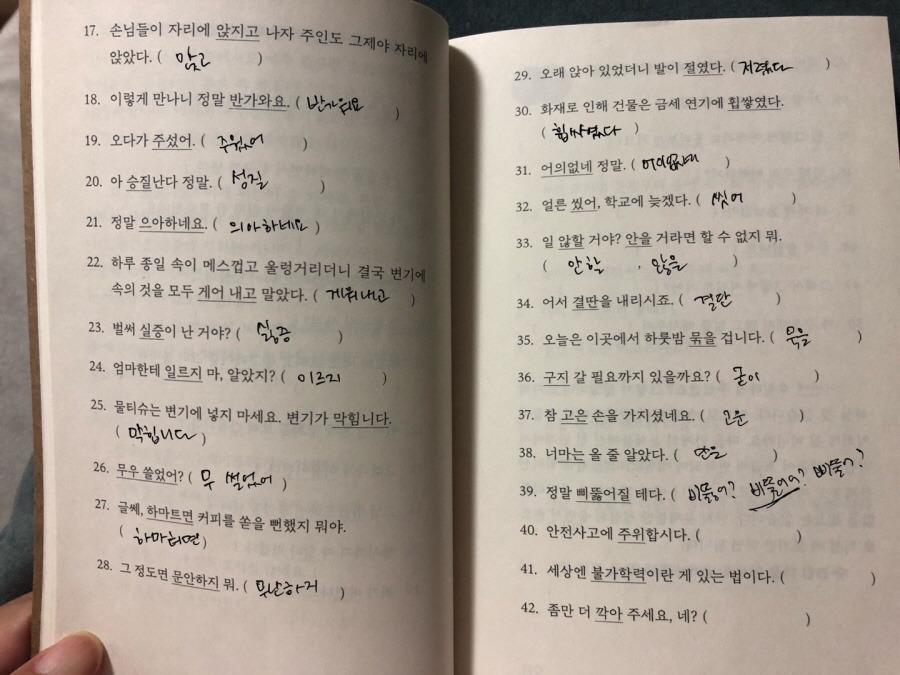 17. 손님들이 자리에 앉지고 나자 주인도 그제야 자리에
앉았다. ( 앉고 )
18. 이렇게 만나니 정말 반가와요. ( 반가워요 )
19. 오다가 주섰어. ( 주웠어 )
20. 아 승질난다 정말. ( 성질 )
21. 정말 으아하네요. ( 의아하네요 )
22. 하루 종일 속이 메스껍고 울렁거리더니 결국 변기에
속의 것을 모두 게어 내고 말았다. ( 게워내고 )
23. 벌써 실증이 난 거야? ( 싫증 )
24. 엄마한테 일르지 마, 알았지? ( 이르지 )
25. 물티슈는 변기에 넣지 마세요. 변기가 막힘니다.
( 막힙니다 )
26. 무우 쓸었어? ( 무 썰었어 )
27. 글쎄, 하마트면 커피를 쏟을 뻔했지 뭐야.
( 하마터면 )
28. 그 정도면 문안하지 뭐. ( 무난하지 )
29. 오래 앉아 있었더니 발이 절였다. ( 저렸다 )
30. 화재로 인해 건물은 금세 연기에 휩쌓였다.
( 휩싸였다 )
31. 어의없네 정말. ( 어이없네 )
32. 얼른 씼어, 학교에 늦겠다. ( 씻어 )
33. 일 않할 거야? 안을 거라면 할 수 없지 뭐.
( 안할 , 않을 )
34. 어서 결딴을 내리시죠. ( 결단 )
35. 오늘은 이곳에서 하룻밤 묶을 겁니다. ( 묵을 )
36. 구지 갈 필요까지 있을까요? ( 굳이 )
37. 참 고은 손을 가지셨네요. ( 고운 )
38. 너마는 올 줄 알았다. ( 만은 )
39. 정말 삐뚫어질 테다. ( 비뚤어? 비뚤어어? 삐뚤어? )
40. 안전사고에 주위합시다. ( )
41. 세상엔 불가학력이란 게 있는 법이다. ( )
42. 좀만 더 깍아 주세요, 네? ( )